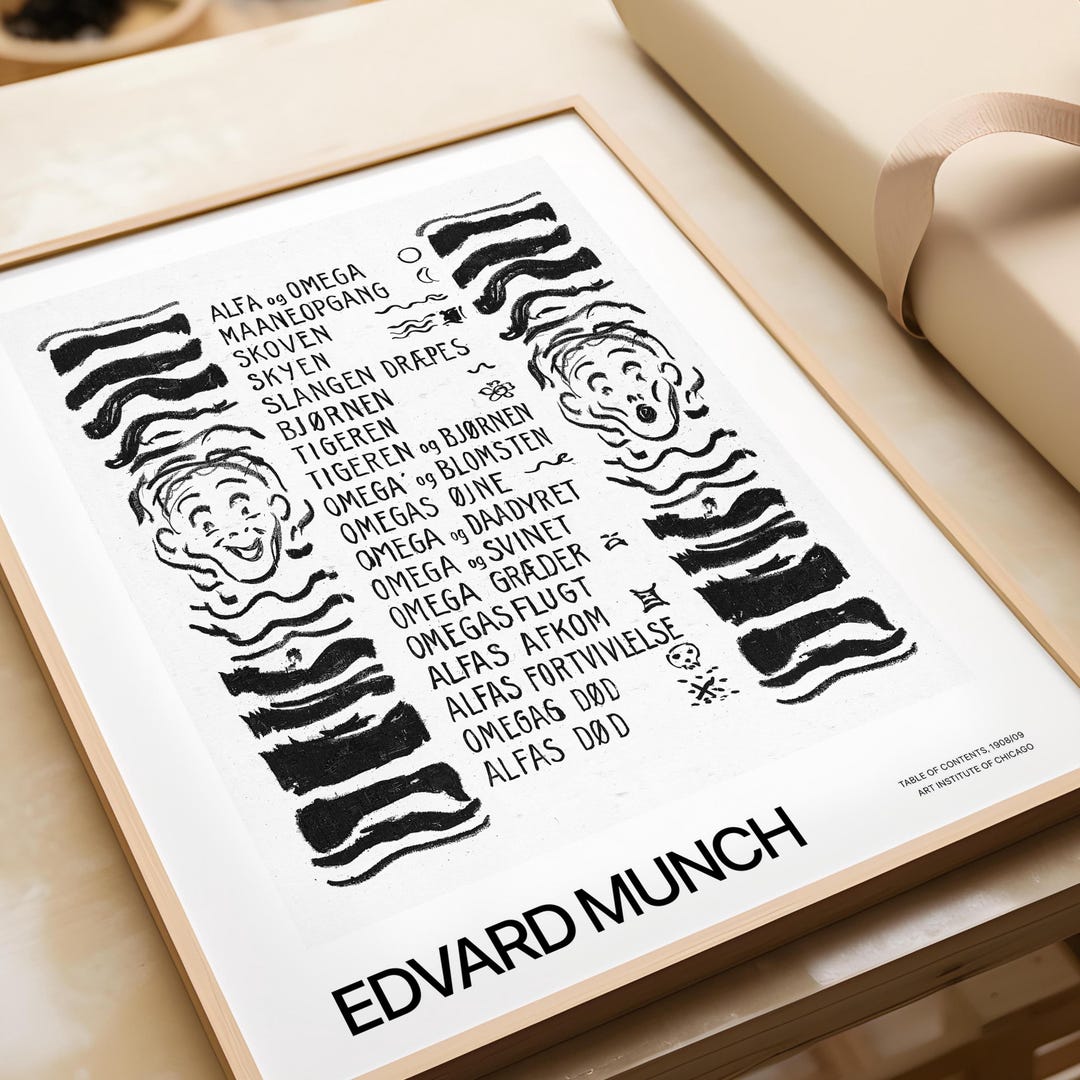 ALFA og OMEGA
MAANEOPGANG
SKOVEN
SKYEN
SLANGEN DRÆPES
BJØRNEN
TIGEREN
TIGEREN og BJØRNEN
OMEGA og BLOMSTEN
OMEGAS ØJNE
OMEGA og DAADYRET
OMEGA og SVINET
OMEGA GRÆDER
OMEGAS FLUGT
ALFAS AFKOM
ALFAS FORTVIVLELSE
OMEGAS DØD
ALFAS DØD
TABLE OF CONTENTS, 1908/09
ART INSTITUTE OF CHICAGO
EDVARD MUNCH